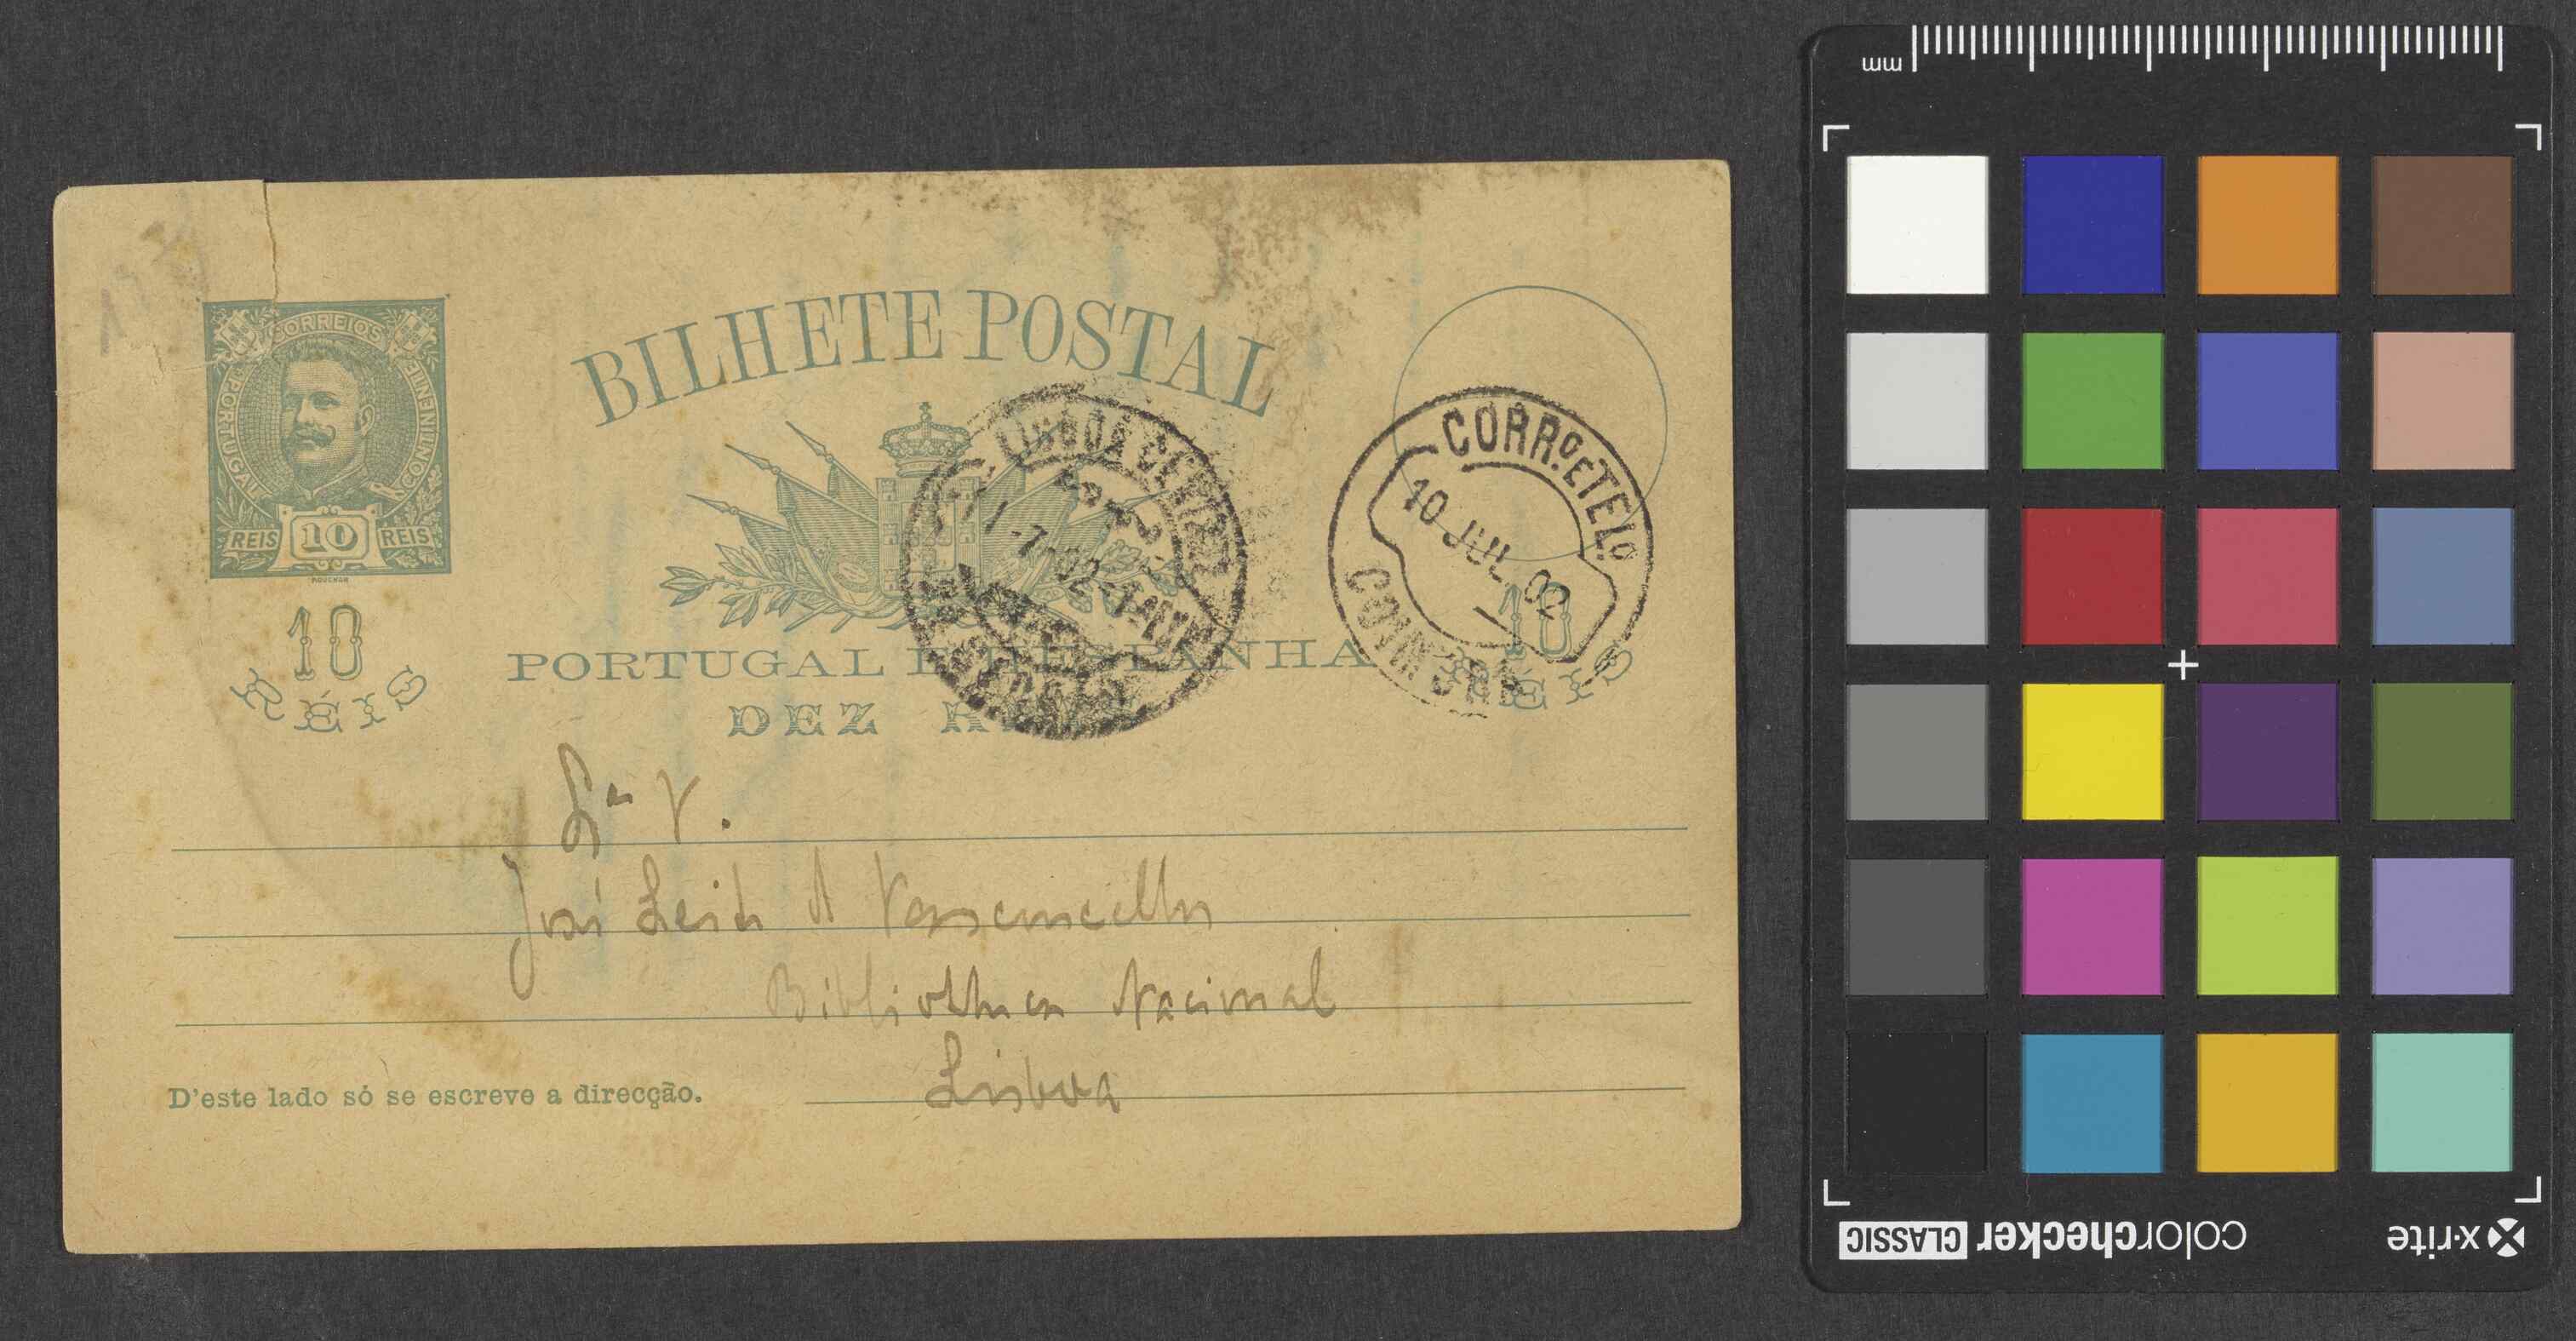 CORREIOS
PORTUGAL
CONTINENTE
REIS 10 REIS
MOUCHON
10
RÉIS
BILHETE POSTAL
LISBOA CENTRAL
11-7-02
CORRº E TELº
10 JUL. 02
COIMBRA
10
RÉIS
PORTUGAL E HESPANHA
DEZ RÉIS
José Leite d Vasconcellos
Bibliotheca Nacional
Lisboa
D'este lado só se escreve a direcção.
mm
colorchecker CLASSIC
x-rite